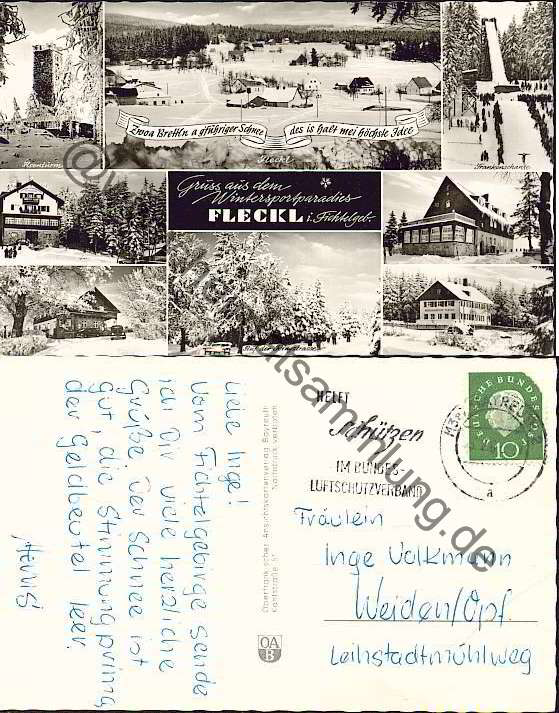 Zwoa Brettln a gführiger Schnee
des is halt mei höchste Idee
Asenturm
Fleckl
Frankenschanze
Gruss aus dem
Wintersportparadies
FLECKL i. Fichtelgeb.
HELFT
Schützen
IM BUNDES-
LUFTSCHUTZVERBAND
DEUTSCHE BUNDESPOST
10
a
Liebe Inge!
Vom Fichtelgebirge sende
ich Dir viele herzliche
Grüße. Der Schnee ist
gut die Stimmung prima
der Geldbeutel leer.
Oberfränkischer Ansichtskartenverlag Bayreuth
Nachdruck verboten
OA
B
Fräulein
Inge Volkmann
Weiden/Opf.
Leihstadtmühlweg